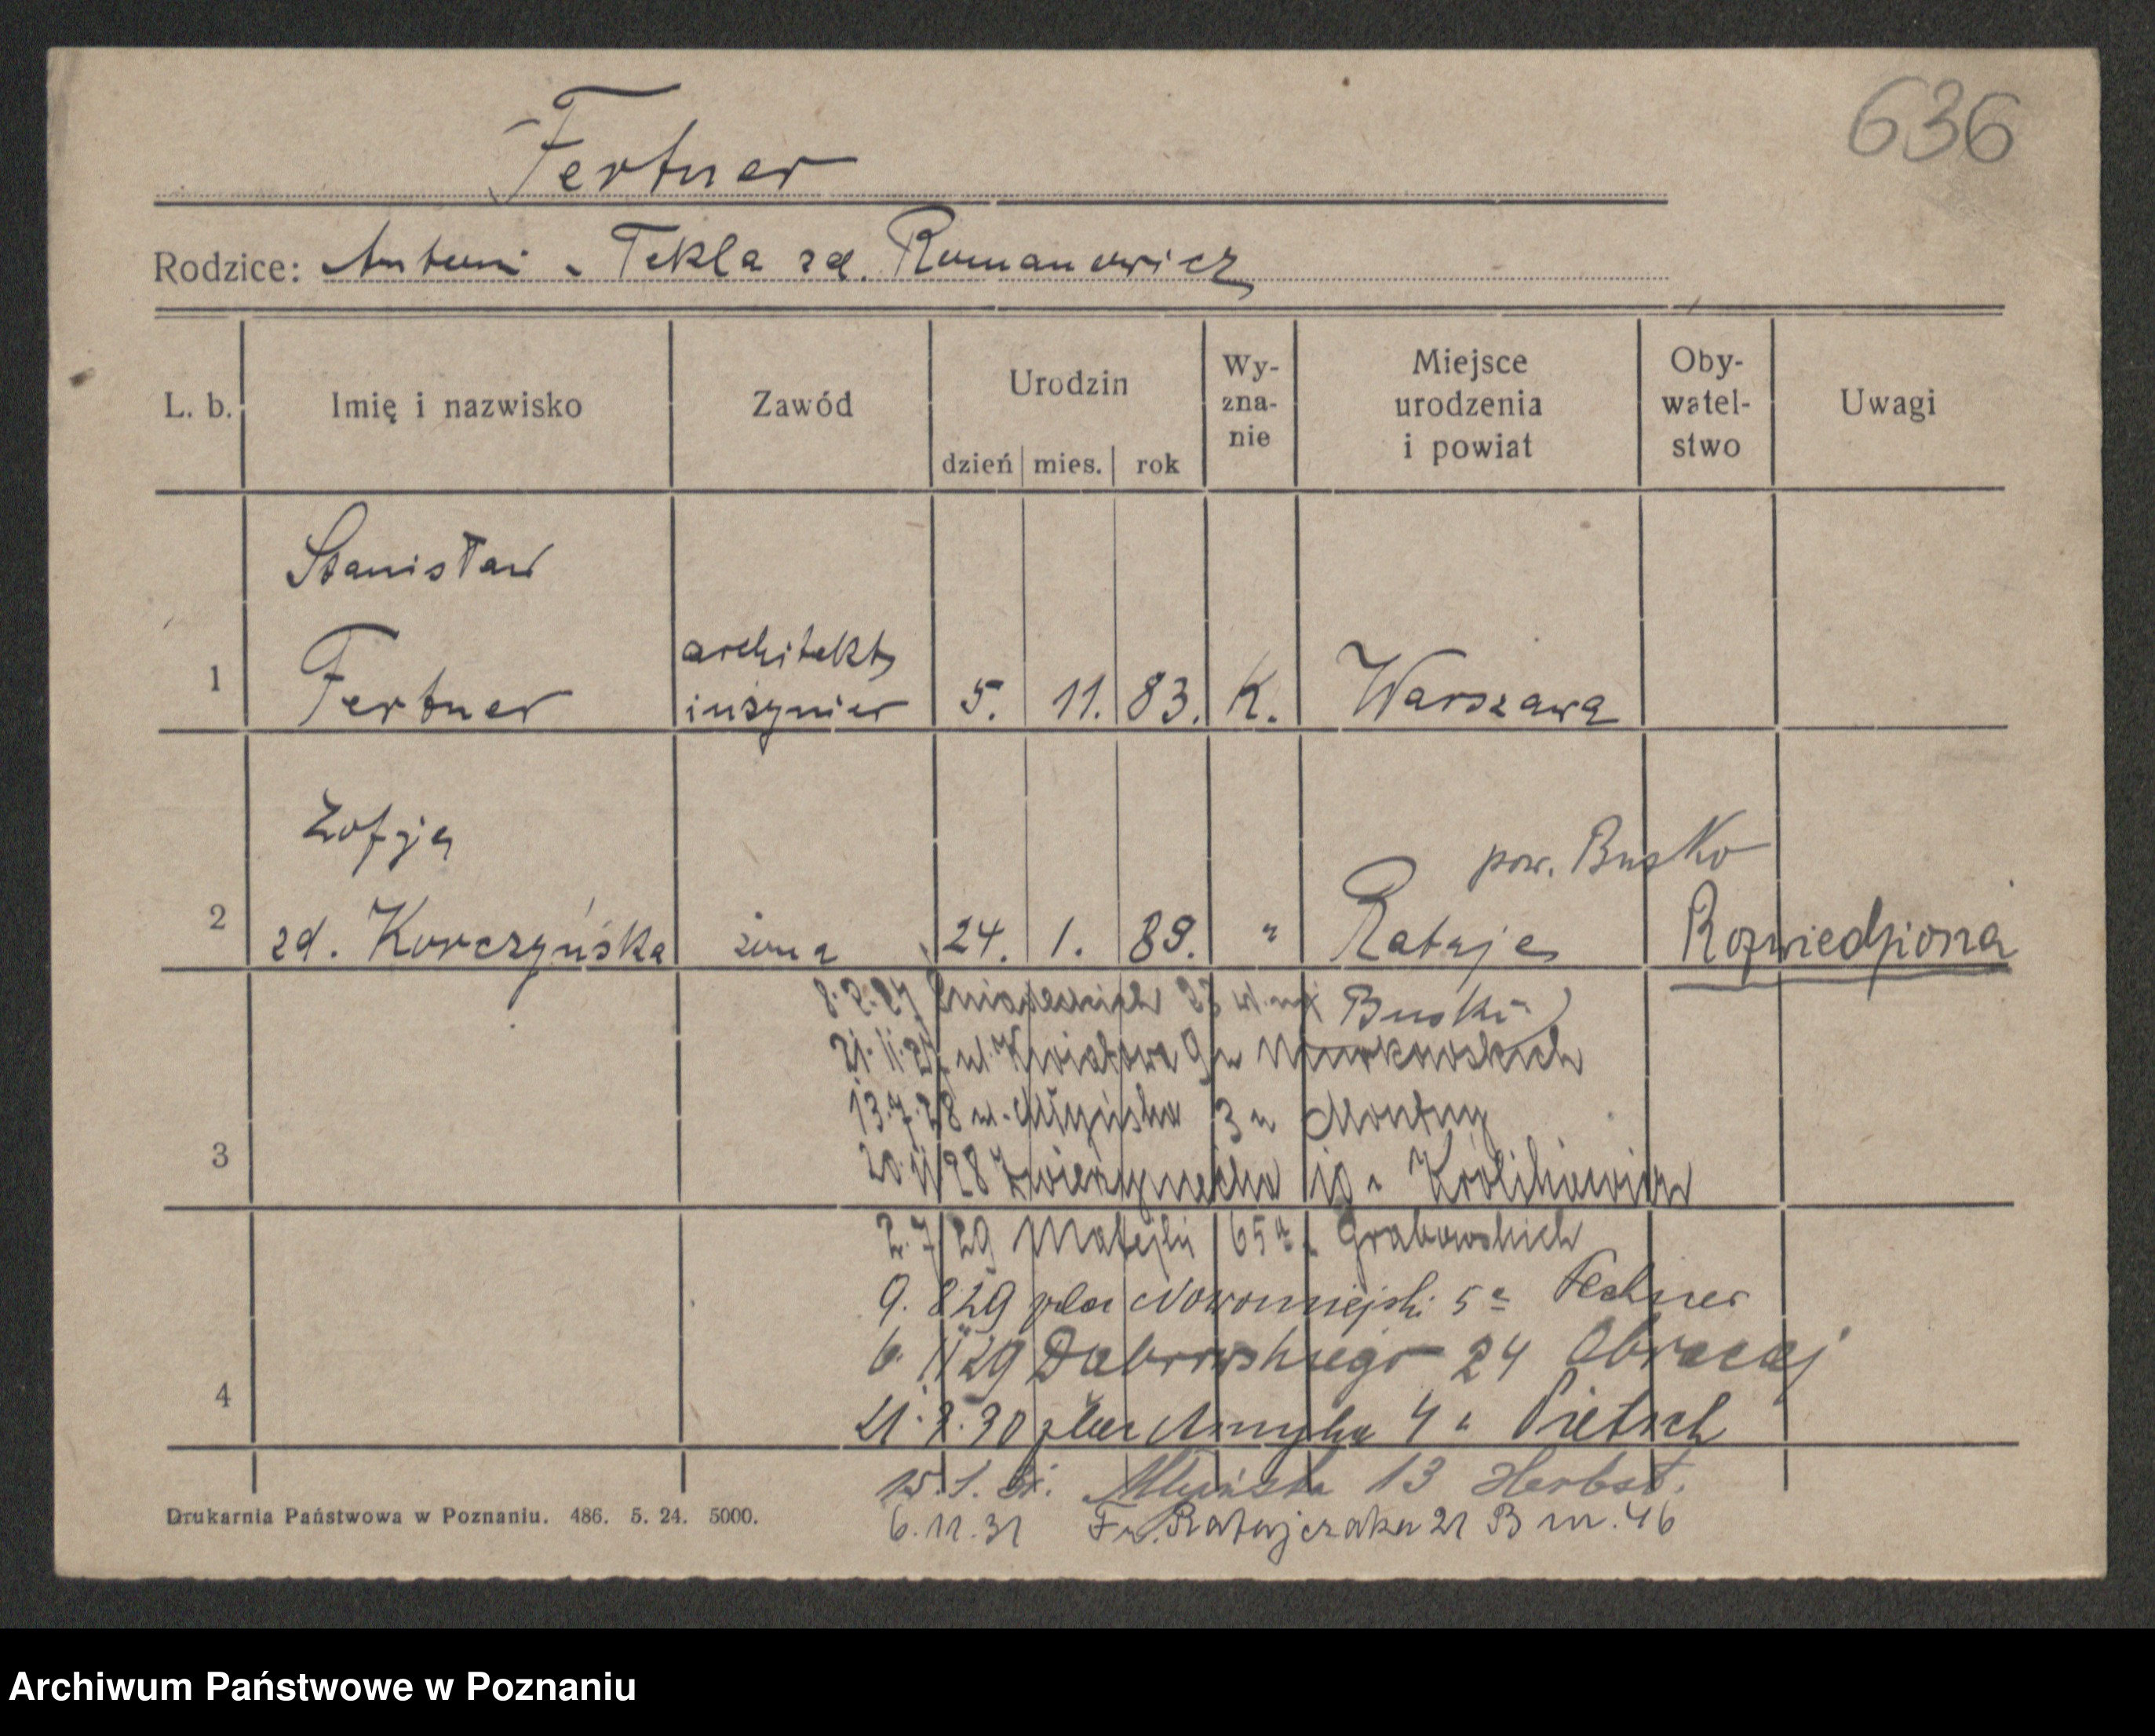 636
Fertner
Rodzice: Antoni - Tekla zd. Romanowicz
L. b. Imię i nazwisko Zawód Urodzin dzień mies. rok Wy-zna-nie Miejsce urodzenia i powiat Oby-watel-stwo Uwagi
Stanisław
1 Fertner architekt, inżynier 5. 11. 83. K. Warszawa
Zofja
pow. Busko
2 zd. Korczyńska żona 24. 1. 89. " Rataje Rozwiedziona
8.2.27 Śniadeckich 23
Busko
21.11.27 ul. Kwiatowa 9 u
13.7.28 ul. Młyńska 3 u
3
20.11 28 Zwierzyniecka u Królikiewicz
2.7 29 Matejki 65 u Grabowskich
9.8 29 plac Nowomiejski 5 u Fechner
6.11 29 Dąbrowskiego 24
4
plac Asnyka 4 u Pietsch
15.1.31. Młyńska 13 Herbst.
Drukarnia Państwowa w Poznaniu. 486. 5. 24. 5000.
6.11.31 Fr. Ratajczaka 21 B m. 46
Archiwum Państwowe w Poznaniu